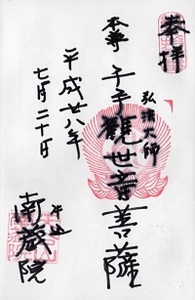 奉拝
弘法大師
本尊 子手観世音菩薩
平成廿八年
七月二十日
牛込
南蔵院